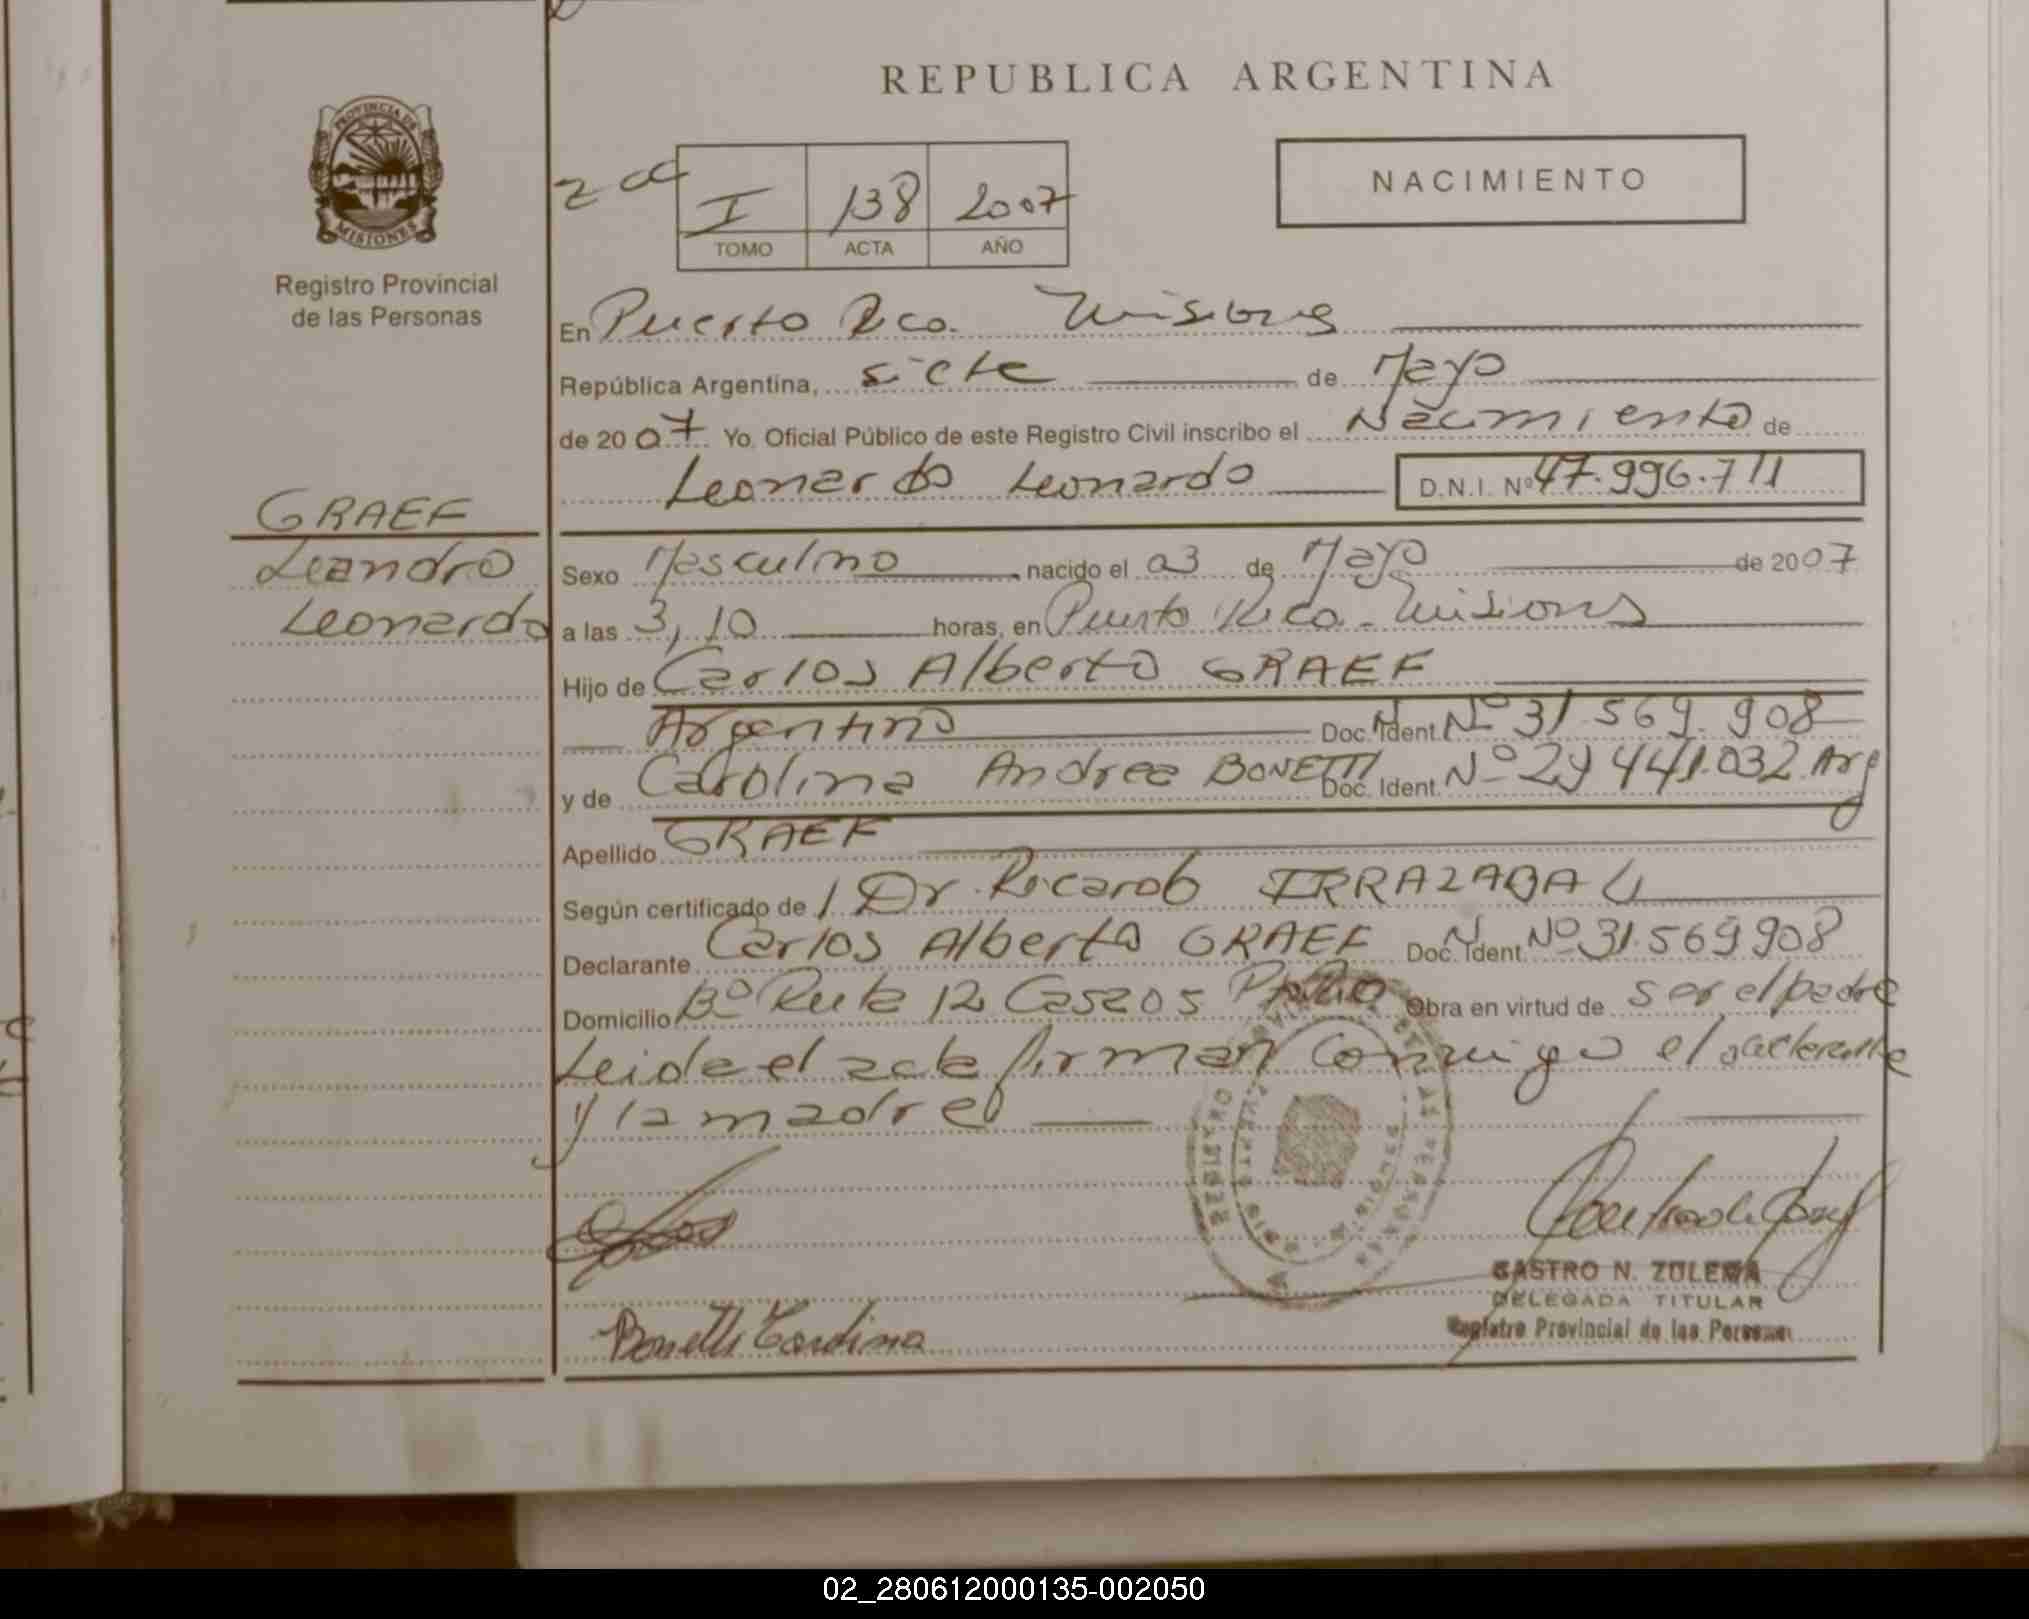 REPUBLICA ARGENTINA
PROVINCIA DE
MISIONES
Registro Provincial
de las Personas
NACIMIENTO
I 138 2007
TOMO ACTA AÑO
En Puerto Rico. Misiones
República Argentina, siete de Mayo
de 2007 Yo, Oficial Público de este Registro Civil inscribo el Nacimiento de
Leonardo Leonardo D.N.I. Nº 47.996.711
GRAEF
Leandro
Leonardo
Sexo Masculino nacido el 03 de Mayo de 2007
a las 3,10 horas, en Puerto Rico - Misiones
Hijo de Carlos Alberto GRAEF
Argentino Doc. Ident. Nº 31.569.908
y de Carolina Andrea BONETTI Doc. Ident. Nº 29441.032 Arg
Apellido GRAEF
Según certificado de Dr. Ricardo IRRAZABAL
Declarante Carlos Alberto GRAEF Doc. Ident. Nº 31.569908
Domicilio Bº Ruta 12 Casa 05 Obra en virtud de ser el padre
Leida el acta firman conmigo el declarante
y la madre
CASTRO N. ZULEMA
DELEGADA TITULAR
Registro Provincial de las Personas
Bonetti Carolina
02_280612000135-002050